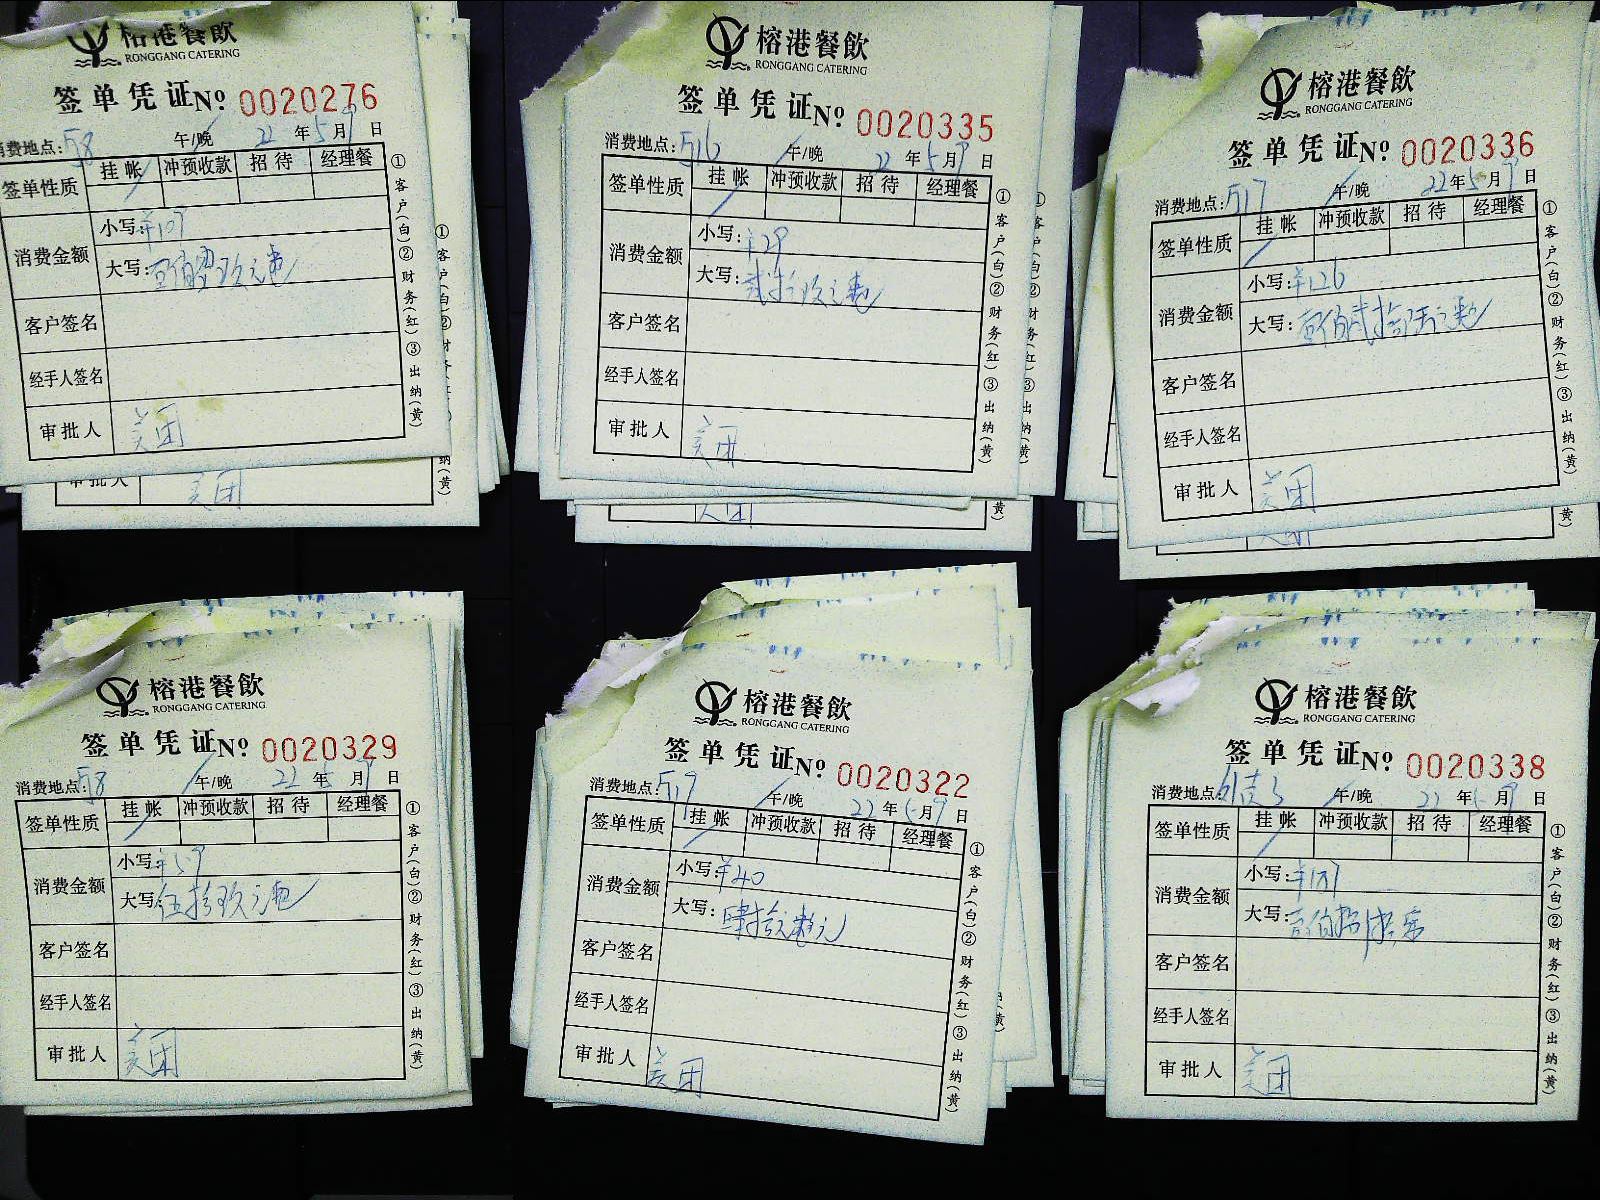 榕港餐飲
RONGGANG CATERING
签单凭证 No 0020276
消费地点:58 午/晚 22年5月9日
签单性质 挂帐 冲预收款 招待 经理餐
消费金额 小写:¥109
大写:壹佰零玖元整
客户签名
经手人签名
审批人 美团
①客户(白)②财务(红)③出纳(黄)
审批人 美团
榕港餐飲
RONGGANG CATERING
签单凭证 No 0020335
消费地点:516 午/晚 22年5月9日
签单性质 挂帐 冲预收款 招待 经理餐
消费金额 小写:¥29
大写:贰拾玖元整
客户签名
经手人签名
审批人 美团
①客户(白)②财务(红)③出纳(黄)
榕港餐飲
RONGGANG CATERING
签单凭证 No 0020336
消费地点:517 午/晚 22年5月9日
签单性质 挂帐 冲预收款 招待 经理餐
消费金额 小写:¥126
大写:壹佰贰拾陆元整
客户签名
经手人签名
审批人 美团
①客户(白)②财务(红)③出纳(黄)
榕港餐飲
RONGGANG CATERING
签单凭证 No 0020329
消费地点:58 午/晚 22年5月9日
签单性质 挂帐 冲预收款 招待 经理餐
消费金额 小写:¥59
大写:伍拾玖元整
客户签名
经手人签名
审批人 美团
①客户(白)②财务(红)③出纳(黄)
榕港餐飲
RONGGANG CATERING
签单凭证 No 0020322
消费地点:519 午/晚 22年5月9日
签单性质 挂帐 冲预收款 招待 经理餐
消费金额 小写:¥40
大写:肆拾元整
客户签名
经手人签名
审批人 美团
①客户(白)②财务(红)③出纳(黄)
榕港餐飲
RONGGANG CATERING
签单凭证 No 0020338
消费地点: 午/晚 22年5月9日
签单性质 挂帐 冲预收款 招待 经理餐
消费金额 小写:
大写:壹佰
客户签名
经手人签名
审批人 美团
①客户(白)②财务(红)③出纳(黄)